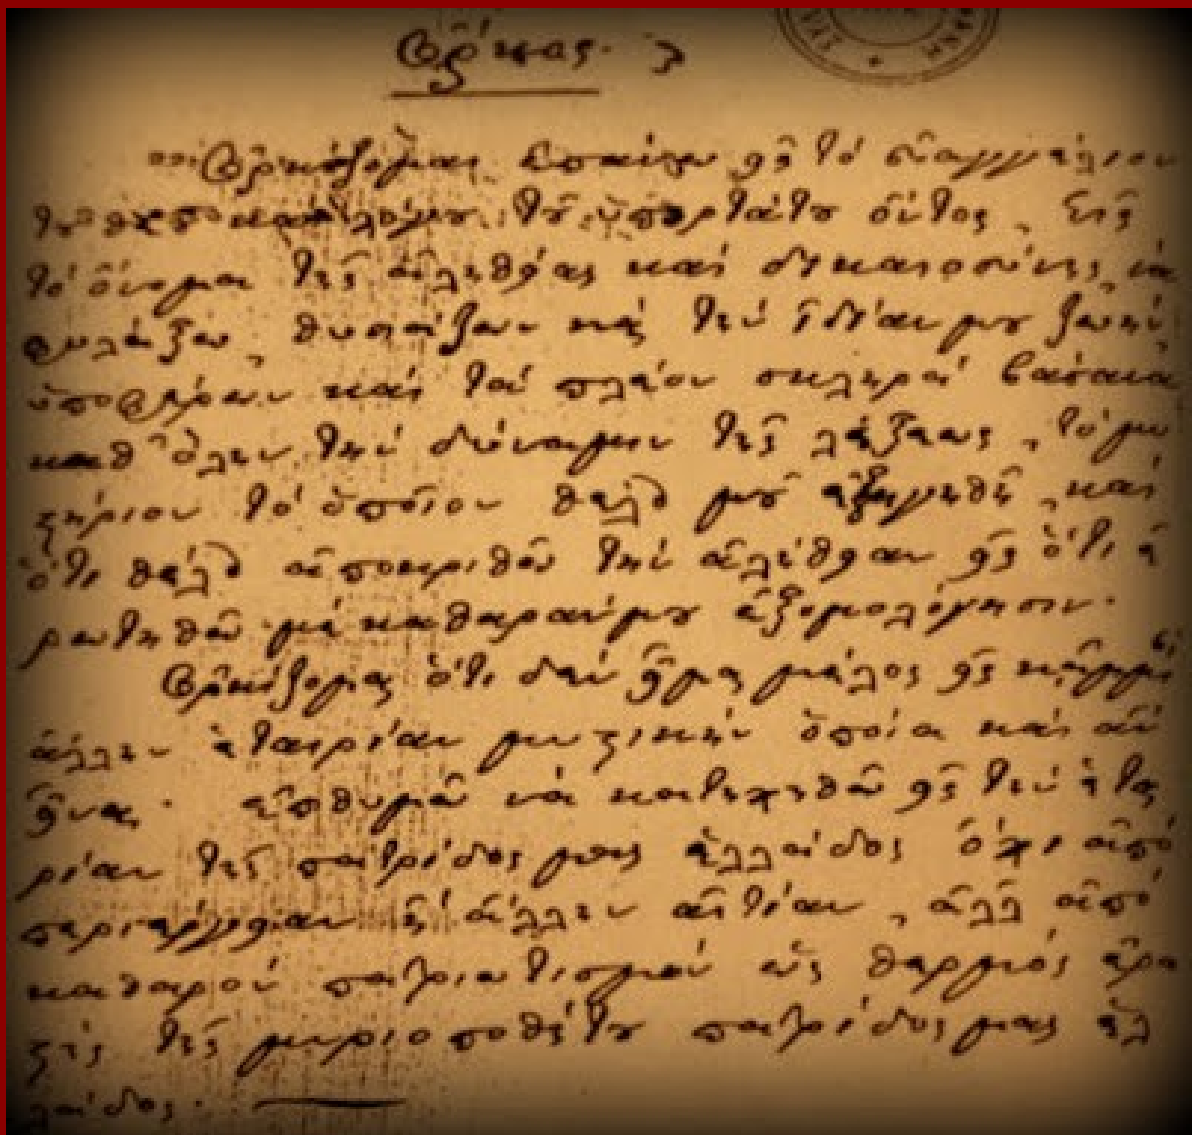 Ὅρκος.
Ὁρκίζομαι ἐπάνω εἰς τὸ εὐαγγέλιον
τοῦ ὑπερτάτου ὄντος, εἰς
τὸ ὄνομα τῆς ἀληθείας καὶ δικαιοσύνης, νὰ
φυλάξω, θυσιάζων καὶ τὴν ἰδίαν μου ζωὴν,
ὑποφέρων καὶ τὰ πλέον σκληρὰ βάσανα
καθ' ὅλην τὴν δύναμιν τῆς λέξεως, τὸ μυ
στήριον τὸ ὁποῖον θέλει μοῦ ἐξηγηθῆ, καὶ
ὅτι θέλω ἀποκριθῶ τὴν ἀλήθειαν εἰς ὅτι ἐ
ρωτηθῶ μὲ καθαράν μου ἐξομολόγησιν.
Ὁρκίζομαι ὅτι δὲν εἶμαι μέλος εἰς καμμί
ἄλλην ἑταιρίαν μυστικὴν ὁποία καὶ ἂν
εἶναι. ἐπιθυμῶ νὰ κατηχηθῶ εἰς τὴν ἑται
ρίαν τῆς πατρίδος μας ἑλλάδος ὄχι ἀπὸ
περιέργειαν ἢ ἄλλην αἰτίαν, ἀλλ' ἀπὸ
καθαρὸν πατριωτισμὸν ὡς θερμὸς ἐρα
στὴς τῆς μυριοποθήτου πατρίδος μας ἑλ
λάδος.